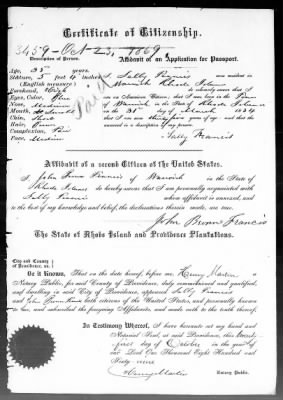 Certificate of Citizenship.
3459 - Oct 23, 1869
Description of Person.
Affidavit of an Application for Passport.
Age, 35 years
Stature, 5 feet 4 inches
(English measure)
Forehead, High
Eyes, Color, Blue
Nose, Medium
Mouth,
Chin, Short
Hair, Brown
Complexion, Fair
Face, Medium
Paid
I, Sally Francis now resident in
Warwick Rhode Island
do sincerely swear that I
am born in the Town
of Warwick in the State of Rhode Island
on the 31 day of March 1834
that I am thirty five years of age and that the
annexed is a description of my person
Sally Francis
Affidavit of a second Citizen of the United States.
I John Brown Francis of Warwick in the State of
Rhode Island do hereby swear that I am personally acquainted with
Sally Francis whose affidavit is annexed, and
to the best of my knowledge and belief, the declarations therein made, are true.
John Brown Francis
The State of Rhode Island and Providence Plantations.
City and County
of Providence, ss.
Be it known, That on the date hereof, before me, Henry Martin a
Notary Public, for said County of Providence, duly commissioned and qualified,
and dwelling in said City of Providence, appeared Sally Francis
and John Brown Francis both citizens of the United States, and personally known
to me, and subscribed the foregoing Affidavits, and made oath to the truth thereof.
In Testimony Whereof, I have hereunto set my hand and
Notarial Seal, at said Providence, this twenty
first day of October in the year of
our Lord One Thousand Eight Hundred and
Sixty nine
Henry Martin Notary Public.